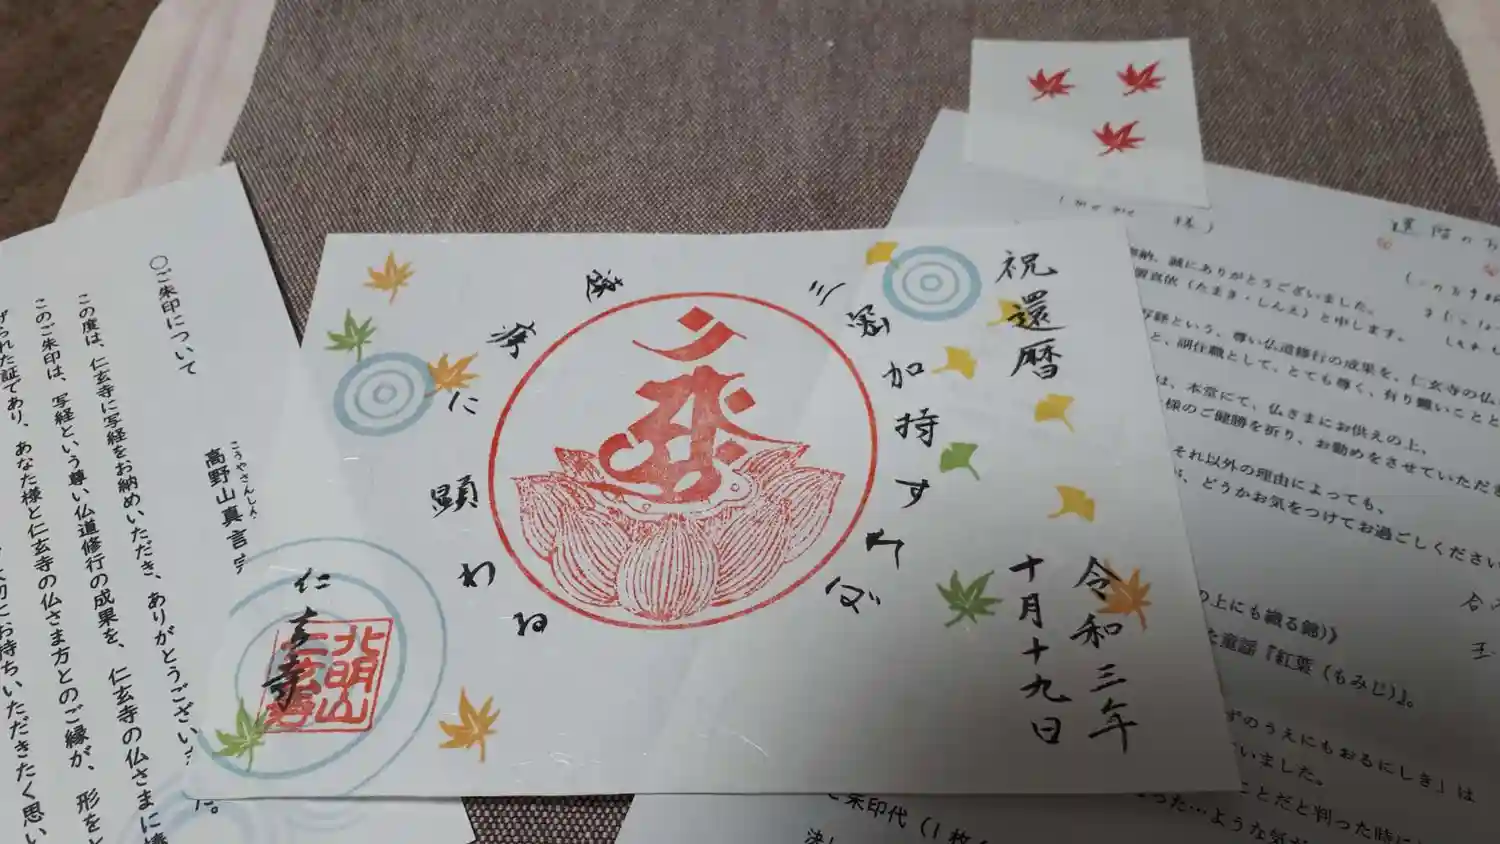 祝還暦
令和三年
十月十九日
三密加持すれば
疾に顕わる
仁玄寺
北明山
仁玄寺
〇ご朱印について
高野山真言宗
こうやさんしん
この度は、仁玄寺に写経をお納めいただき、ありがとうござい
このご朱印は、写経という尊い仏道修行の成果を、仁玄寺の仏さまに
げられた証であり、あなた様と仁玄寺の仏さま方とのご縁が、形を
切にお持ちいただきたく思い
様)
納、誠にありがとうございました。
真依(たまき・しんえ)と申します。
写経という、尊い仏道修行の成果を、仁玄寺の仏
と、副住職として、とても尊く、有り難いことと
は、本堂にて、仏さまにお供えの上、
様のご健勝を祈り、お勤めをさせていただき
それ以外の理由によっても、
、どうかお気をつけてお過ごしください
の上にも織る錦)》
た童謡『紅葉(もみじ)』。
ずのうえにもおるにしき」は
いました。
ことだと判った時に
った…ような気が
ご朱印代(1枚